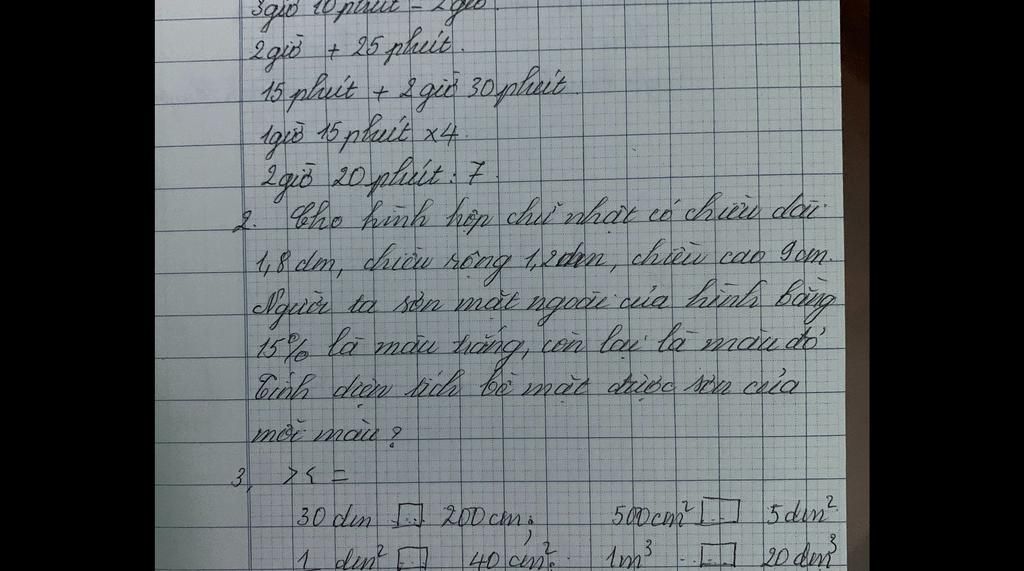 3giờ 10 phút - 2giờ
2giờ + 25 phút.
15 phút + 2 giờ 30 phút
1giờ 15 phút x4.
2giờ 20 phút: 7.
2. Cho hình hộp chữ nhật có chiều dài
1,8 dm, chiều rộng 1,2dm, chiều cao 9cm.
Người ta sơn mặt ngoài của hình bằng
15% là màu trắng, còn lại là màu đỏ
Tính diện tích bề mặt được sơn của
mỗi màu?
3, > < =
30 dm ... 200 cm; 500cm² ... 5dm²
1 dm² ... 40 cm². 1m³ ... 20 dm³